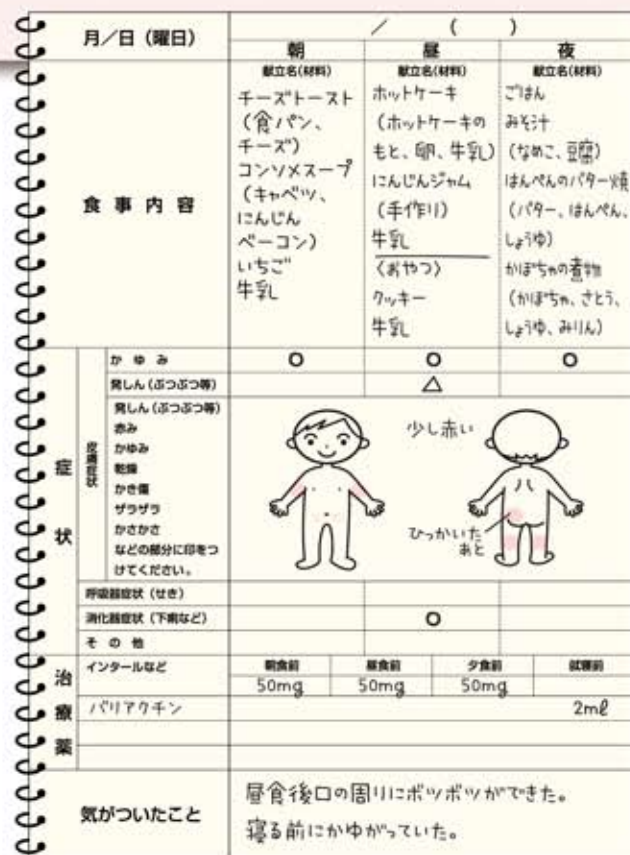 月／日（曜日）
／　（　）
朝 昼 夜
献立名(材料) 献立名(材料) 献立名(材料)
食事内容
チーズトースト
(食パン、
チーズ)
コンソメスープ
(キャベツ、
にんじん
ベーコン)
いちご
牛乳
ホットケーキ
(ホットケーキの
もと、卵、牛乳)
にんじんジャム
(手作り)
牛乳
〈おやつ〉
クッキー
牛乳
ごはん
みそ汁
(なめこ、豆腐)
はんぺんのバター焼
(バター、はんぺん、
しょうゆ)
かぼちゃの煮物
(かぼちゃ、さとう、
しょうゆ、みりん)
症状
かゆみ ○ ○ ○
発しん(ぶつぶつ等) △
皮膚症状
発しん(ぶつぶつ等)
赤み
かゆみ
乾燥
かき傷
ザラザラ
かさかさ
などの部分に印をつ
けてください。
少し赤い
ひっかいた
あと
呼吸器症状（せき）
消化器症状（下痢など） ○
その他
治療薬
インタールなど 朝食前 昼食前 夕食前 就寝前
50mg 50mg 50mg
バリアクチン 2ml
気がついたこと
昼食後口の周りにボツボツができた。
寝る前にかゆがっていた。